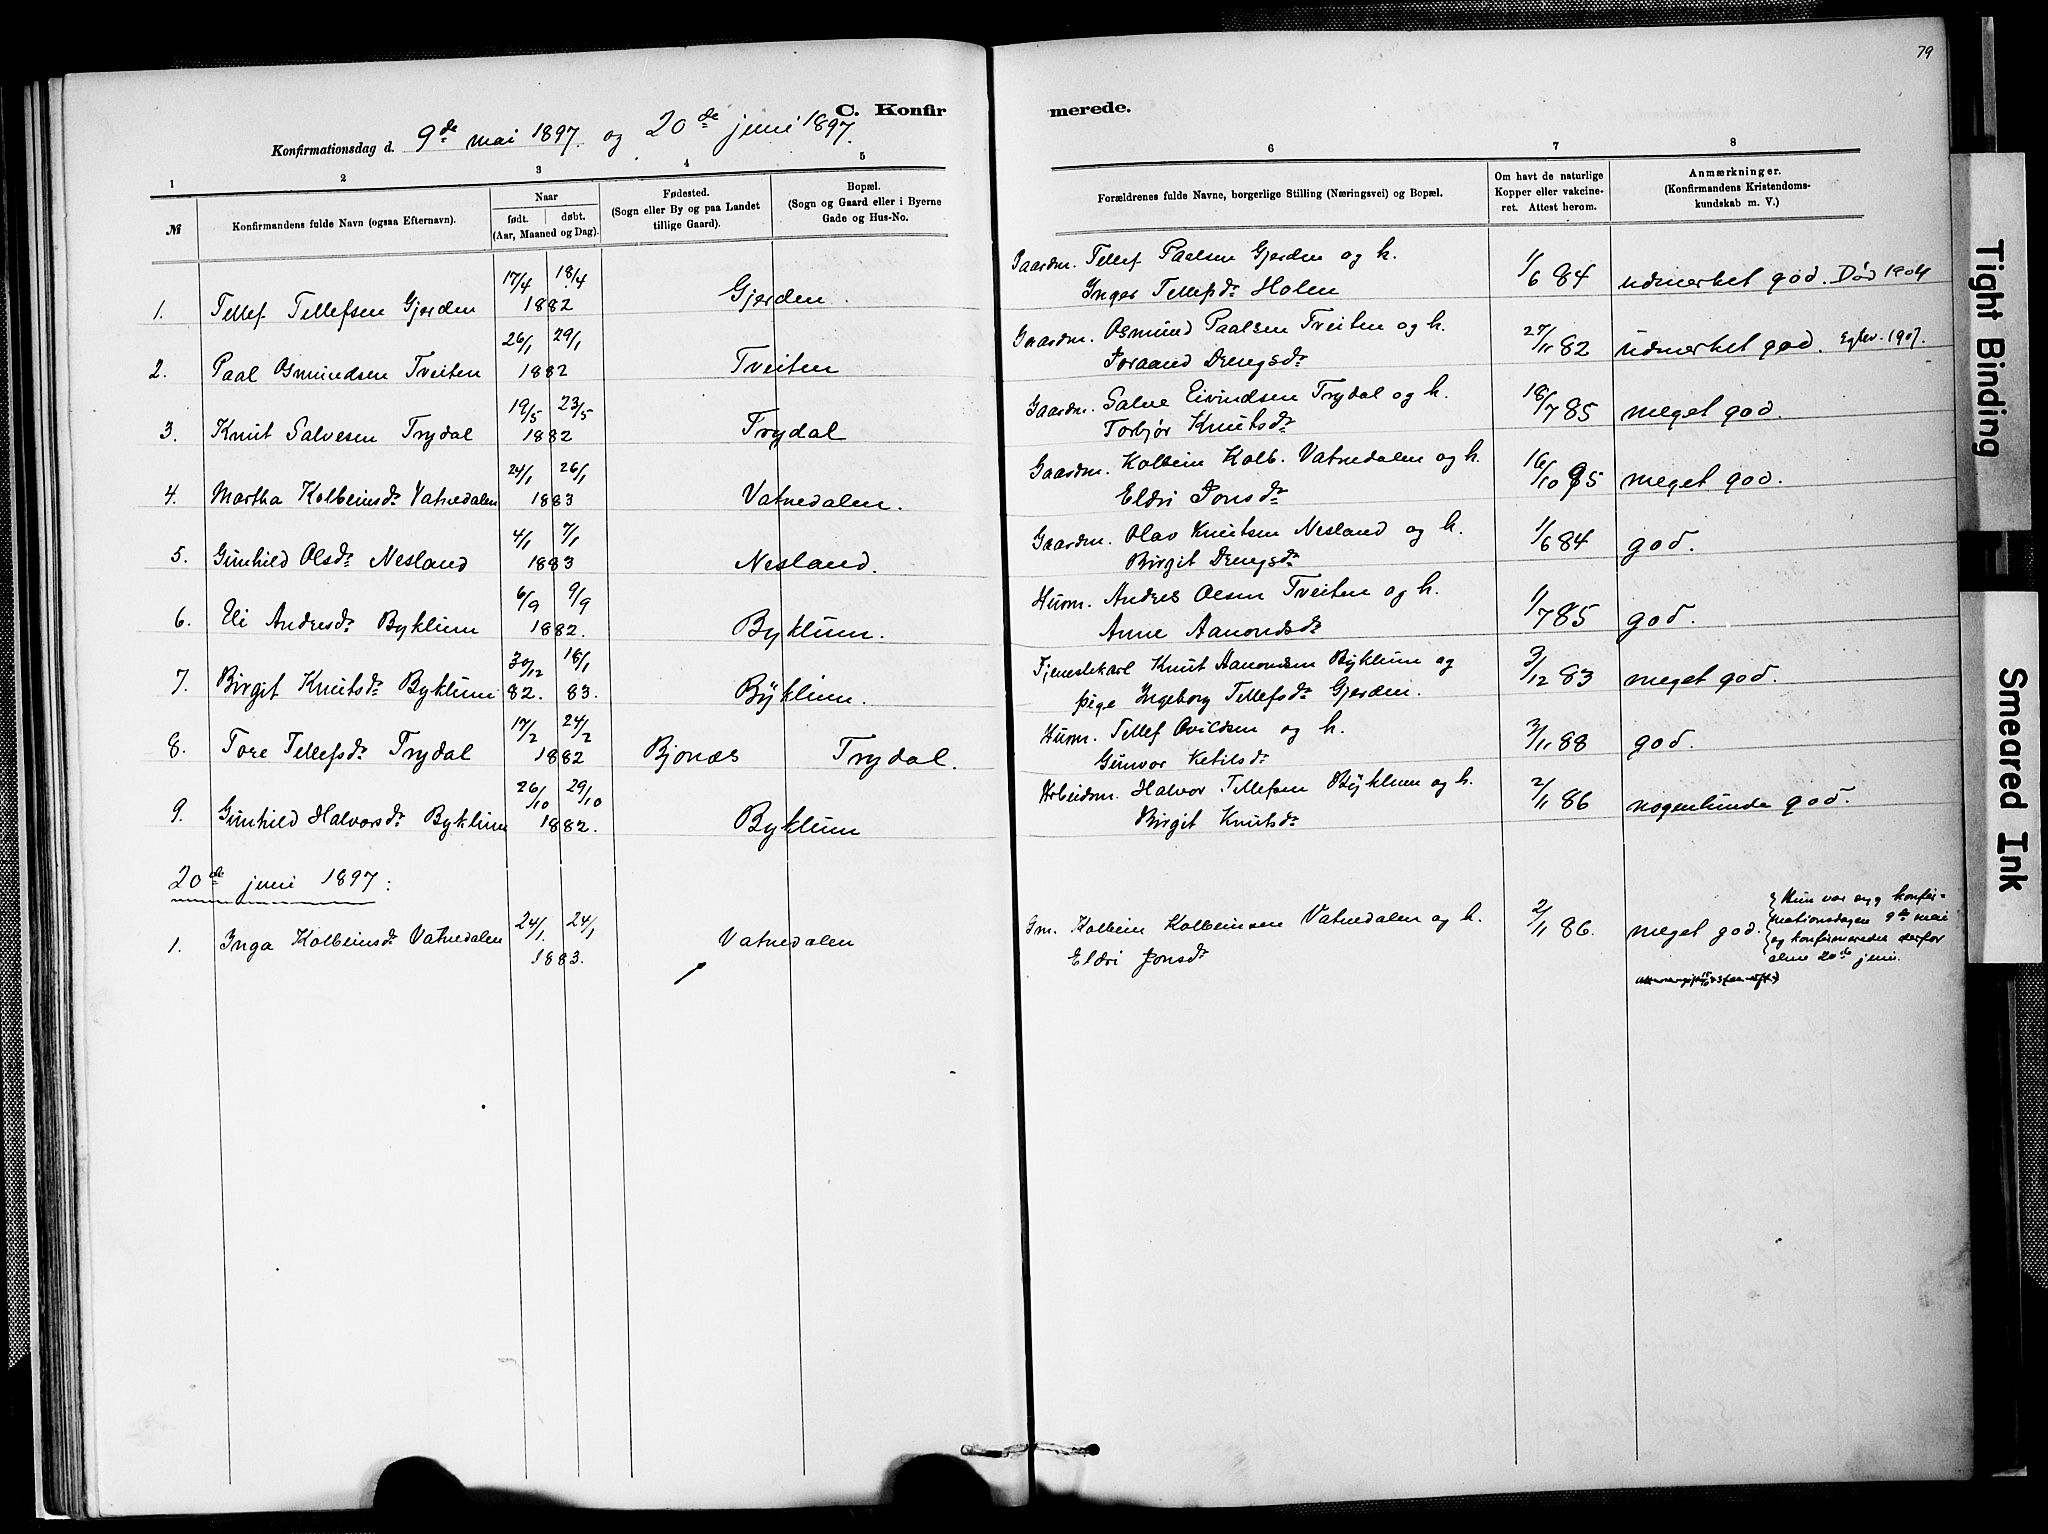 79
C. Konfir merede.
Konfirmationsdag d. 9de mai 1897. og 20de juni 1897.
1 2 3 4 5 6 7 8
№
Konfirmandens fulde Navn (ogsaa Efternavn).
Naar
født. døbt.
(Aar, Maaned og Dag).
Fødested.
(Sogn eller By og paa Landet
tillige Gaard).
Bopæl.
(Sogn og Gaard eller i Byerne
Gade og Hus-No.
Forældrenes fulde Navne, borgerlige Stilling (Næringsvei) og Bopæl.
Om havt de naturlige
Kopper eller vakcine-
ret. Attest herom.
Anmærkninger.
(Konfirmandens Kristendoms-
kundskab m. V.)
17/4 18/4 Gaardm. Tellef Paalsen Gjerden og h. 1/6 84 udmerket god. Død 1904
1. Tellef Tellefsen Gjerden 1882 Gjerden. Inger Tellefsdr Holen
26/1 29/1 Gaardm. Osmund Paalsen Tveiten og h. 27/11 82 udmerket god. 1907.
2. Paal Osmundsen Tveiten 1882 Tveiten Joraand Drengsdr
19/5 23/5 Gaardm. Salve Eivindsen Trydal og h. 18/7 85 meget god.
3. Knut Salvesen Trydal 1882 Trydal Torbjør Knutsdr
24/1 26/1 Gaardm. Kolbein Kolb. Vatnedalen og h. 16/10 85 meget god.
4. Martha Kolbeinsdr Vatnedalen 1883 Vatnedalen. Eldri Jonsdr
4/1 7/1 Gaardm. Olav Knutsen Nesland og h. 1/6 84 god.
5. Gunhild Olsdr Nesland 1883 Nesland. Birgit Drengsdr
6/9 9/9 Husm. Andres Olsen Tveiten og h. 1/7 85 god.
6. Eli Andresdr Byklum 1882. Byklum. Anne Aanondsdr
30/12 18/1 Tjenestekarl Knut Aanondsen Byklum og 3/12 83 meget god.
7. Birgit Knutsdr Byklum 82. 83. Byklum. pige Ingeborg Tellefsdr Gjerden.
17/2 24/2 Husm. Tellef Avildsen og h. 3/11 88 god.
8. Tore Tellefsdr Trydal 1882 Bjonæs Trydal. Gunvor Ketilsdr
26/10 29/10 Arbeidsm. Halvor Tellefsen Byklum og h. 2/1 86 nogenlunde god.
9. Gunhild Halvorsdr Byklum 1882. Byklum Birgit Knutsdr
20de juni 1897:
24/1. 24/1 Gm. Kolbein Kolbeinsen Vatnedalen og h. 2/1 86. meget god. Hun var syg konfir-
mationsdagen 9de mai
og konfirmeredes derfor
alene 20de juni.
1. Inga Kolbeinsdr Vatnedalen 1883. Vatnedalen Eldri Jonsdr
Tight Binding
Smeared Ink